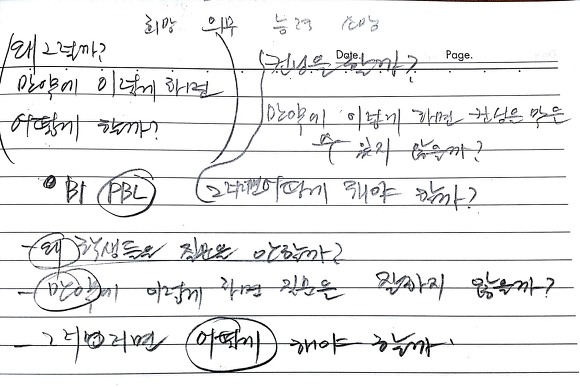 희망 의무 능력 소망
왜 그럴까?
만약에 이렇게 하면
어떻게 할까?
Date. Page.
할까?
만약에 이렇게 하면 않을까?
그러면 어떻게 해야 할까?
BI PBL
- 왜 학생들은 질문을 안할까?
- 만약에 이렇게 하면 질문을 않을까?
- 그러면 어떻게 해야 할까.